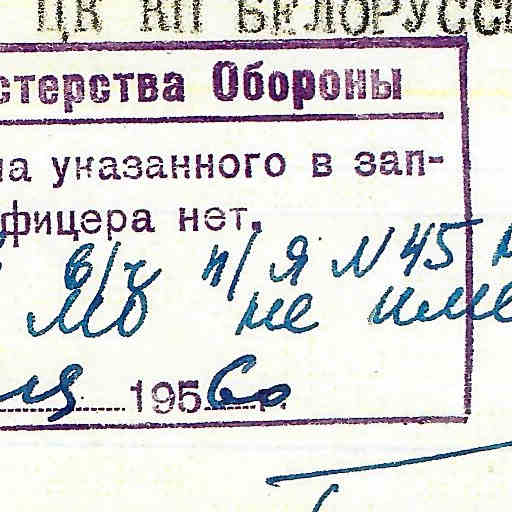 ЦК КП БЕЛОРУССИ
стерства Обороны
на указанного в зап-
фицера нет.
в/ч п/я N 45
МО не име
ля 195 60